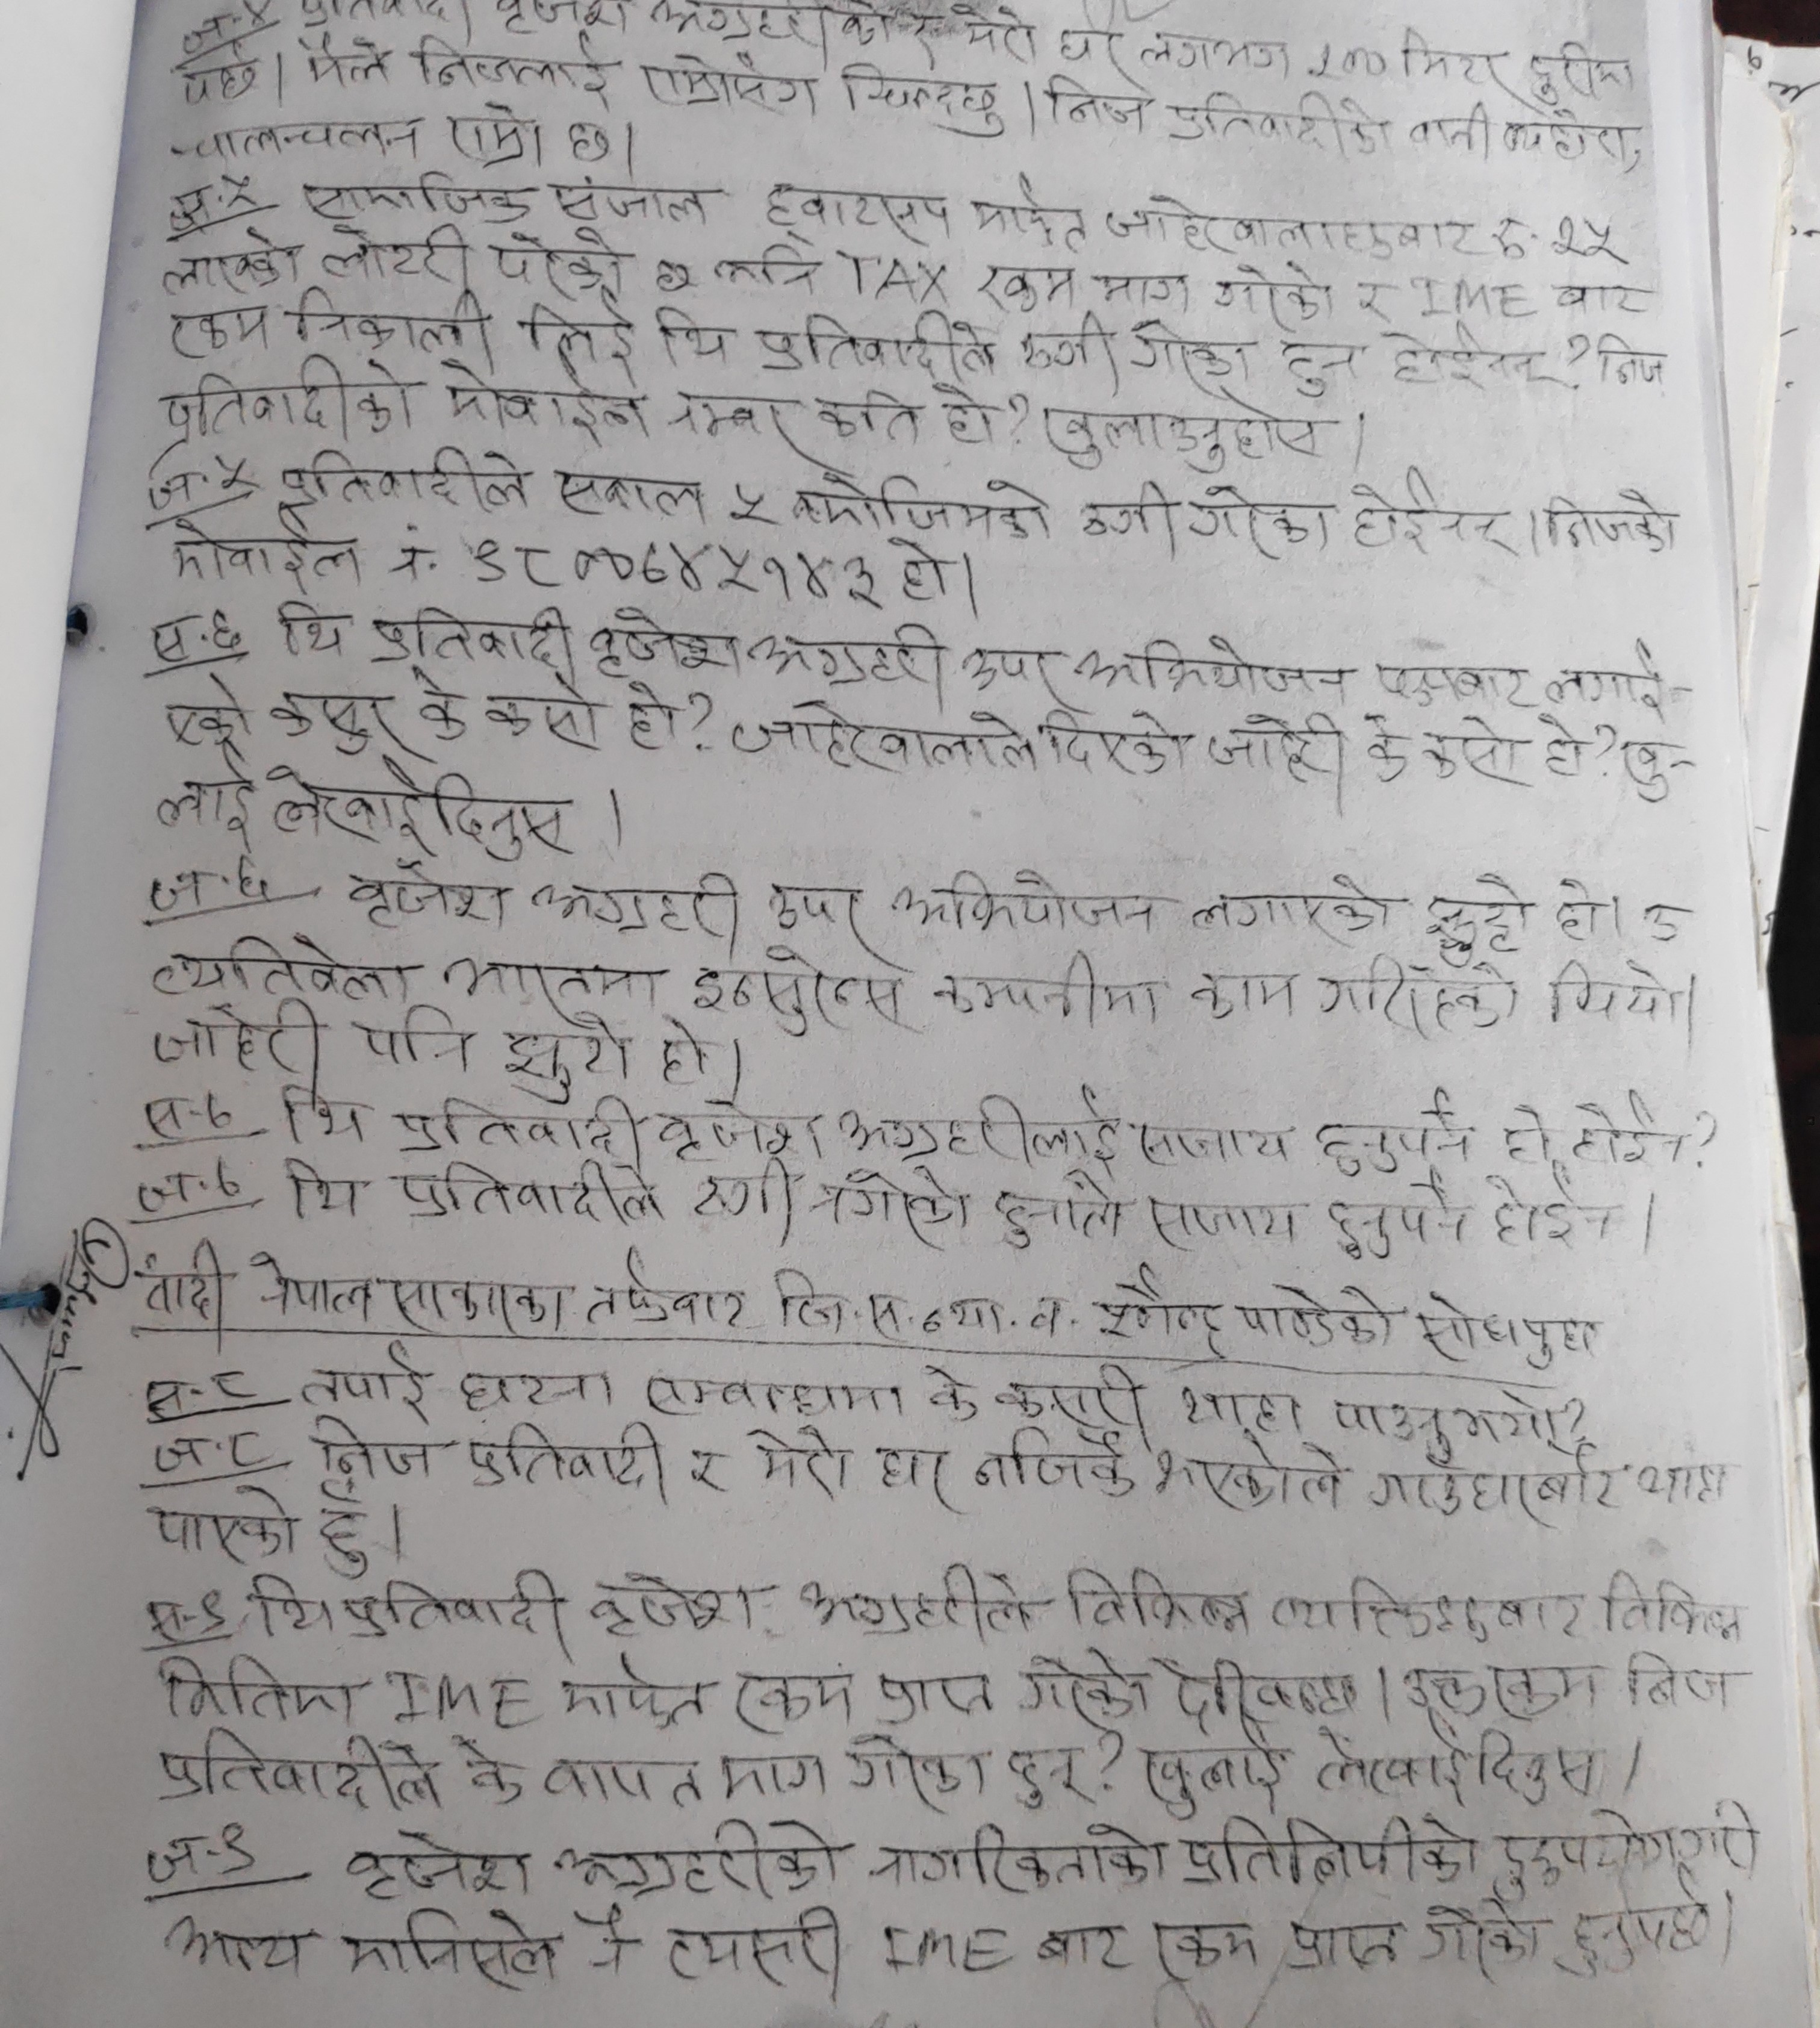 ज.४ प्रतिवादी बृजेश अग्रहरीको र मेरो घर लगभग २०० मिटर दुरीमा
पर्छ। मैले निजलाई राम्रोसंग चिन्दछु। निज प्रतिवादीको वानी व्यहोरा,
चालचलन राम्रो छ।
स.५ सामाजिक संजाल ह्वाटसप मार्फत जाहेरवालाहरुबाट रु. २५
लाखको लोटरी परेको छ भनि TAX रकम माग गरेको र IME बाट
रकम निकाली लिई यि प्रतिवादीले ठगी गरेका हुन होईनन्? निज
प्रतिवादीको मोबाईल नम्बर कति हो? खुलाउनुहोस।
ज.५ प्रतिवादीले सवाल ५ बमोजिमको ठगी गरेका होईनन्। निजको
मोवाईल नं. ९८०७६४५१४३ हो।
स.६ यि प्रतिवादी बृजेश अग्रहरी उपर अभियोजन पक्षबाट लगाई-
एको कसुर के कसो हो? जाहेरवालाले दिएको जाहेरी के कसो हो? खु-
लाई लेखाईदिनुस।
ज.६ बृजेश अग्रहरी उपर अभियोजन लगाएको झुट्टो हो। उ
त्यतिवेला भारतमा इन्सुरेन्स कम्पनीमा काम गरिरहेको थियो।
जाहेरी पनि झुटो हो।
स.७ यि प्रतिवादी बृजेश अग्रहरीलाई सजाय हुनुपर्ने हो होईन?
ज.७ यि प्रतिवादीले ठगी नगरेको हुनाले सजाय हुनुपर्ने होईन।
वादी नेपाल सरकारका तर्फबाट जि.स.न्या.व. पाण्डेको सोधपुछ
स.८ तपाई घटना सम्बन्धमा के कसरी थाहा पाउनुभयो?
ज.८ निज प्रतिवादी र मेरो घर नजिकै भएकोले गाउँघरबाट थाहा
पाएको हुँ।
स.९ यि प्रतिवादी बृजेश अग्रहरीले विभिन्न व्यक्तिहरुबाट विभिन्न
मितिमा IME मार्फत रकम प्राप्त गरेको देखिन्छ। उक्त रकम निज
प्रतिवादीले के वापत माग गरेका हुन्? खुलाई लेखाईदिनुस।
ज.९ बृजेश अग्रहरीको नागरिकताको प्रतिलिपीको दुरुपयोग गरी
अन्य मानिसले नै त्यसरी IME बाट रकम प्राप्त गरेको हुनुपर्छ।